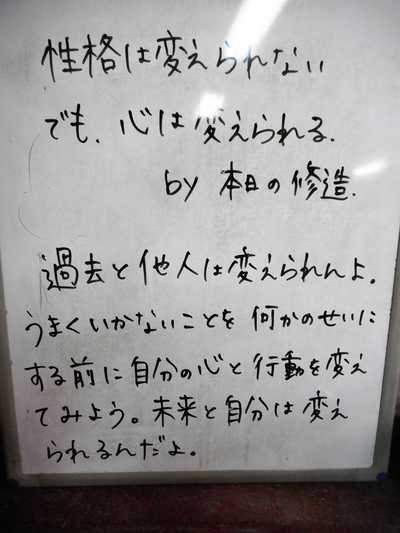 性格は変えられない
でも、心は変えられる.
by 本日の修造.
過去と他人は変えられんよ。
うまくいかないことを何かのせいに
する前に自分の心と行動を変え
てみよう。未来と自分は変え
られるんだよ。